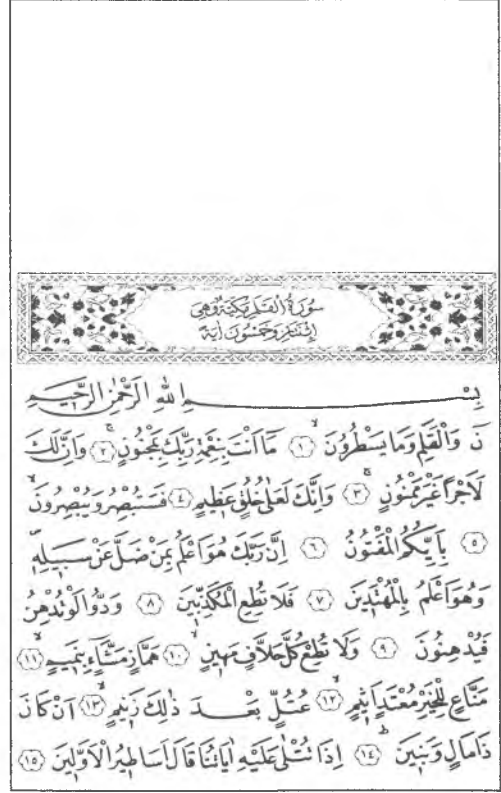 سُورَةُ الْقَلَمِ مَكِّيَّةٌ وَهِيَ
اِثْنَتَانِ وَخَمْسُونَ اٰيَةً
بِسْمِ اللّٰهِ الرَّحْمٰنِ الرَّحِيمِ
نٓ وَالْقَلَمِ وَمَا يَسْطُرُونَۙ ﴿١﴾ مَٓا اَنْتَ بِنِعْمَةِ رَبِّكَ بِمَجْنُونٍۚ ﴿٢﴾ وَاِنَّ لَكَ
لَاَجْرًا غَيْرَ مَمْنُونٍۚ ﴿٣﴾ وَاِنَّكَ لَعَلٰى خُلُقٍ عَظِيمٍ ﴿٤﴾ فَسَتُبْصِرُ وَيُبْصِرُونَۙ
﴿٥﴾ بِاَيِّكُمُ الْمَفْتُونُ ﴿٦﴾ اِنَّ رَبَّكَ هُوَ اَعْلَمُ بِمَنْ ضَلَّ عَنْ سَبِيلِهِۖ
وَهُوَ اَعْلَمُ بِالْمُهْتَدِينَ ﴿٧﴾ فَلَا تُطِعِ الْمُكَذِّبِينَ ﴿٨﴾ وَدُّوا لَوْ تُدْهِنُ
فَيُدْهِنُونَ ﴿٩﴾ وَلَا تُطِعْ كُلَّ حَلَّافٍ مَهِينٍۙ ﴿١٠﴾ هَمَّازٍ مَشَّٓاءٍ بِنَمِيمٍۙ ﴿١١﴾
مَنَّاعٍ لِلْخَيْرِ مُعْتَدٍ اَثِيمٍۙ ﴿١٢﴾ عُتُلٍّ بَعْدَ ذٰلِكَ زَنِيمٍۙ ﴿١٣﴾ اَنْ كَانَ
ذَا مَالٍ وَبَنِينَۜ ﴿١٤﴾ اِذَا تُتْلٰى عَلَيْهِ اٰيَاتُنَا قَالَ اَسَاطِيرُ الْاَوَّلِينَ ﴿١٥﴾